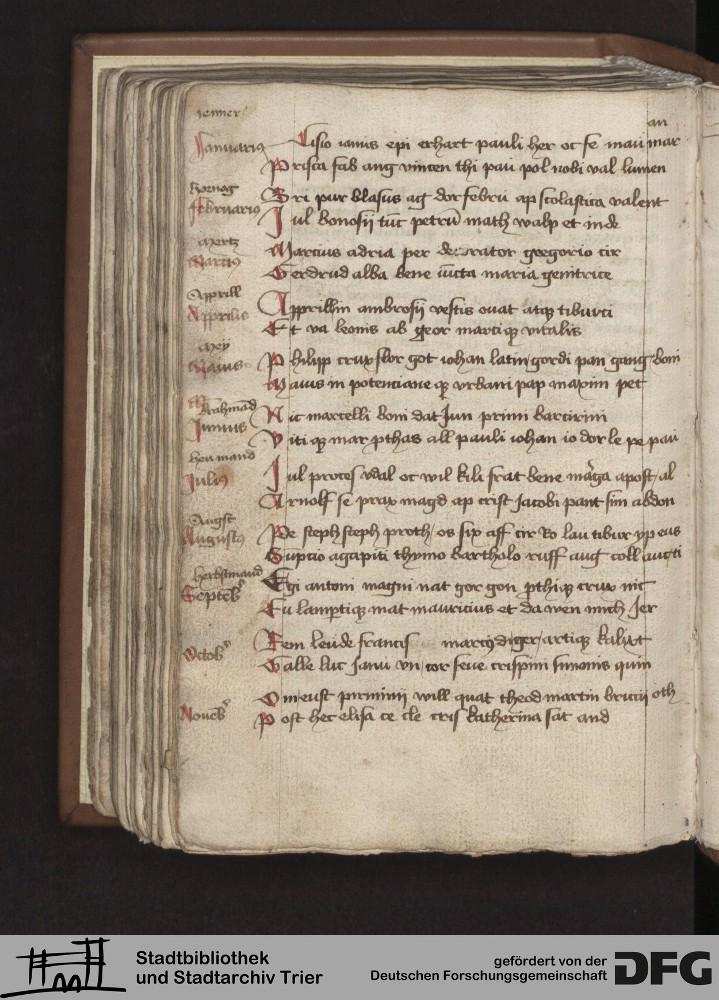 Jenner
an
Januarius Cisio ianus epi erhart pauli her oc fe mau mar
Prisca fab ang vincen thi pau pol nobi val lumen
hornog
Februarius Bri pur blasus ag dor febru ap scolastica valent
Jul bonosij tūc petrū math walp et inde
Mertz
Marcius Marcius adria per decorator gregorio cir
Gerdrud alba bene iūcta maria genitrice
Apprill
Apprilis Apprillin ambrosij vestis ouat atq tiburci
Et va leonis ab geor marciq vitalis
Mey
Maius Philipp crux flor got iohan latin gordi pan gang boni
Maius in potenciane q vrbani pap maxim pet
Brahmād
Junius Nic marcelli boni dat Jun primi barcirini
Viti q mar pthas all pauli iohan io dor le pe pau
heumand
Julius Jul proces vdal oc wil kili frat bene marga apost al
Arnolf se prax magd ap crist Jacobi pant sim abdon
Augst
Augustus Pe steph steph proth os six aff cir ro lau tibur yp eus
Supcio agapiti thymo bartholo ruff aug coll aucti
herbstmand
Septēb Egi antoni magni nat gor gon pthiq crux nic
Eu lamptiq mat mauricius et da wen mich Jer
Octob Rem leude francis marcq diger artiq kalixt
Galle luc Janu vn cor seue crispini simonis quin
Nouēb Omeust pirminij will quat theod martin bricij oth
Post hec elisa ce cle cris katherina sat and
Stadtbibliothek
und Stadtarchiv Trier
gefördert von der
Deutschen Forschungsgemeinschaft
DFG